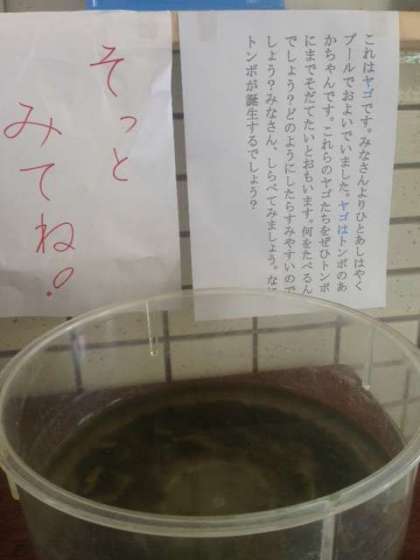 これはヤゴです。みなさんよりひとあしはやく
プールでおよいでいました。ヤゴはトンボのあ
かちゃんです。これらのヤゴたちをぜひトンボ
にまでそだてたいとおもいます。何をたべるん
でしょう？どのようにしたらすみやすいので
しょう？みなさん、しらべてみましょう。なに
トンボが誕生するでしょう？
そっと
みてね！